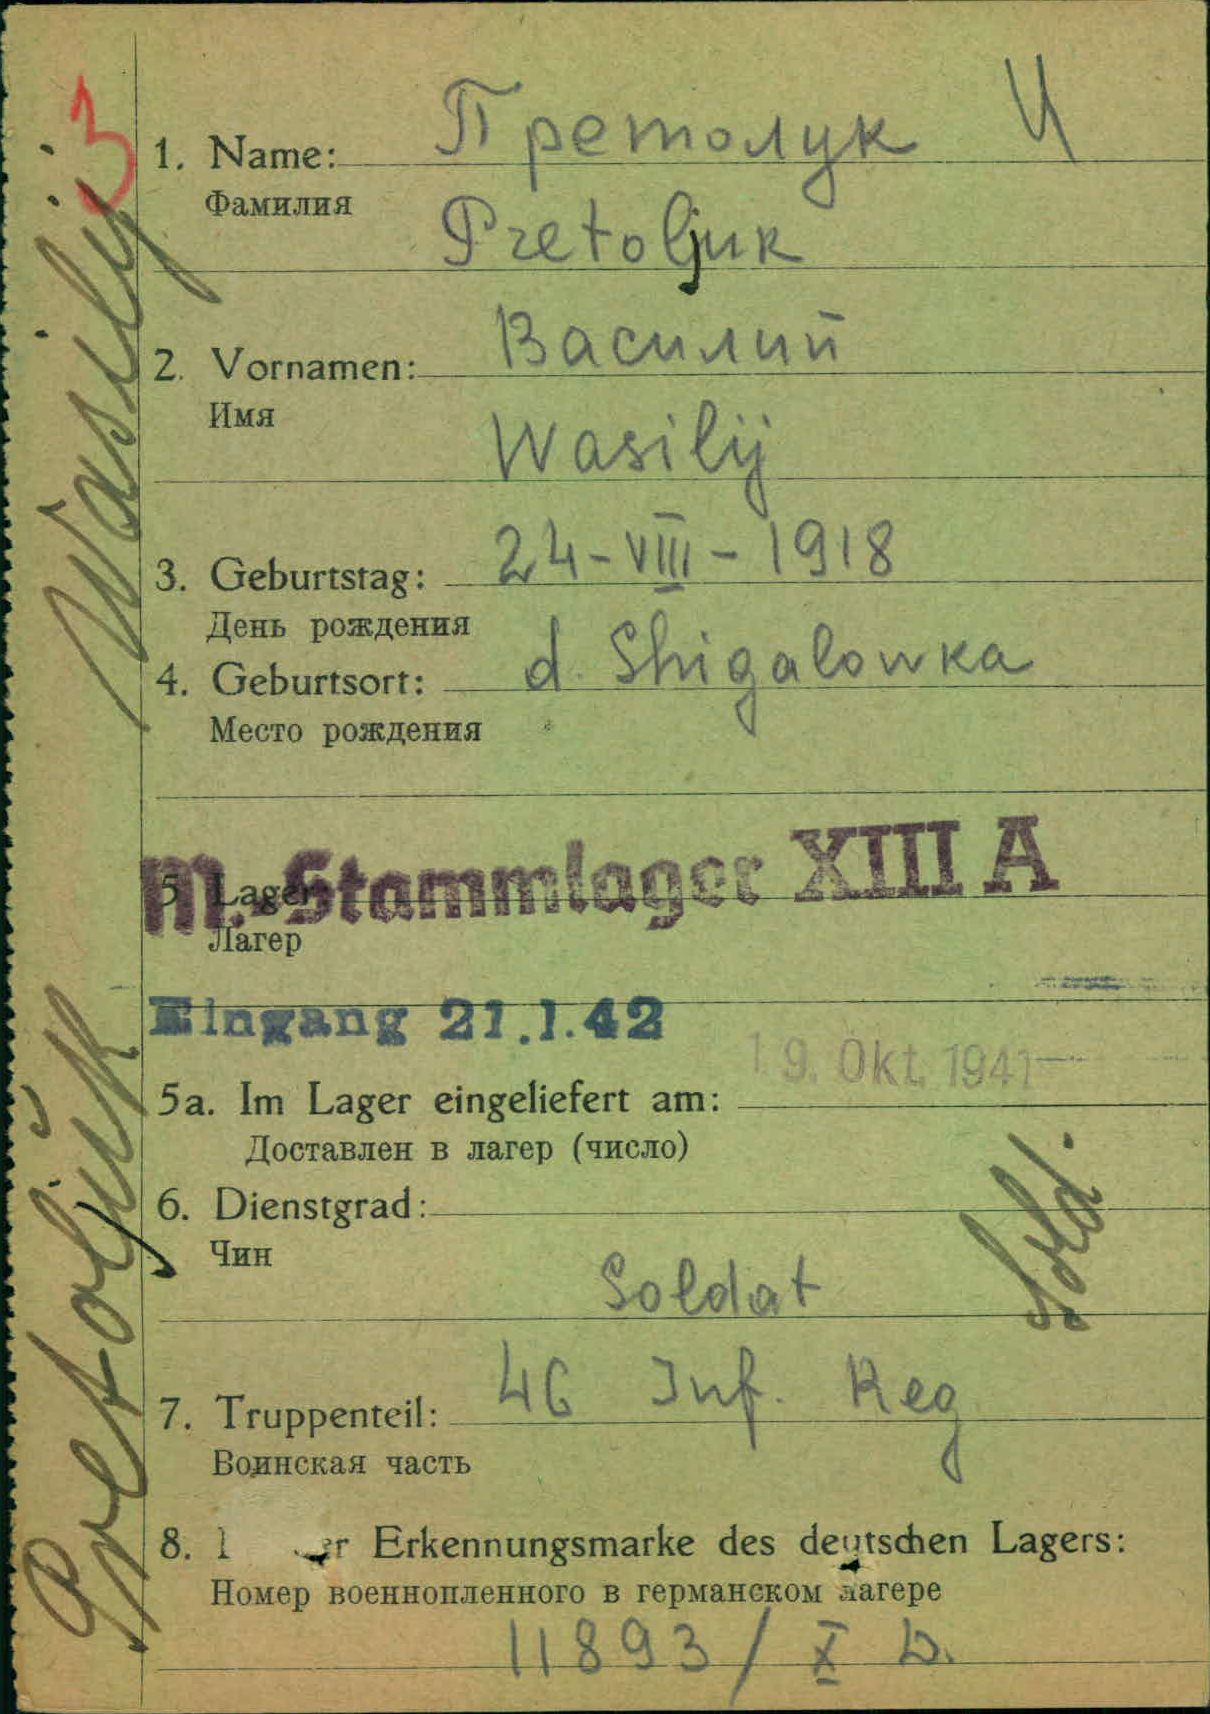 3
И
1. Name: Претолук
Фамилия
Pretoljuk
2. Vornamen: Василий
Имя
Wasilij
3. Geburtstag: 24-VIII-1918
День рождения
4. Geburtsort: d. Shigalowka
Место рождения
M.-Stammlager XIII A
5. Lager
Лагер
Eingang 21.1.42
19. Okt. 1941
5a. Im Lager eingeliefert am:
Доставлен в лагер (число)
6. Dienstgrad:
Чин
Soldat
7. Truppenteil: 46 Inf. Reg
Воинская часть
8. er Erkennungsmarke des deutschen Lagers:
Номер военнопленного в германском лагере
11893 / X D.
Pretoljuk Wasilij